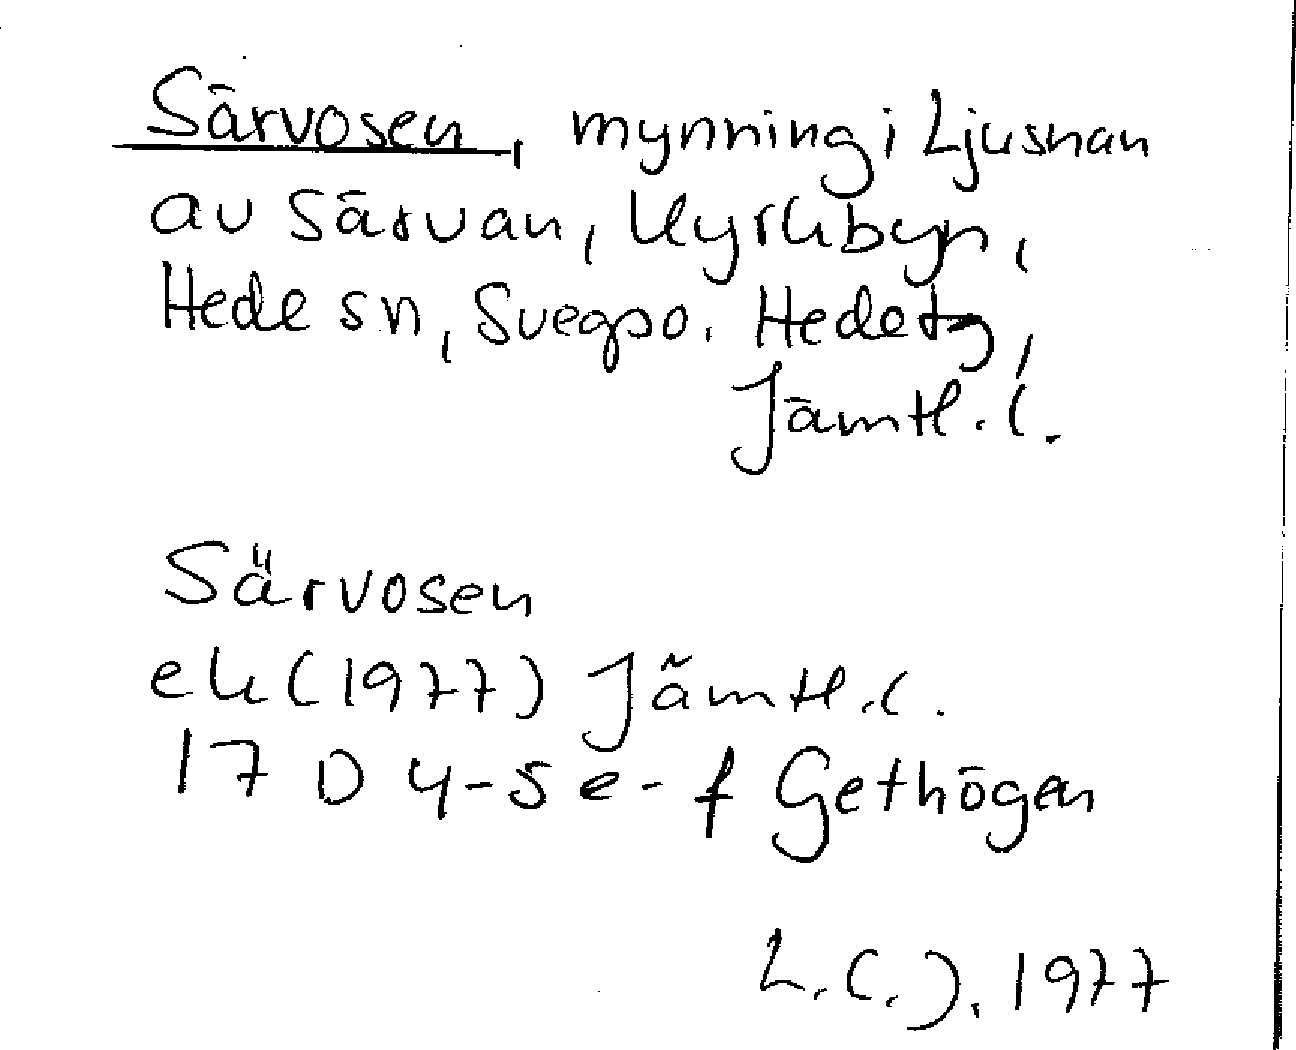 Särvosen, mynning i Ljusnan
av Särvan, Kyrkbyn,
Hede sn, Svegs po. Hede tg,
Jämtl. l.
Särvosen
ek (1977) Jämtl. l.
17 D 4-5 e-f Gethögen
L.C.J. 1977